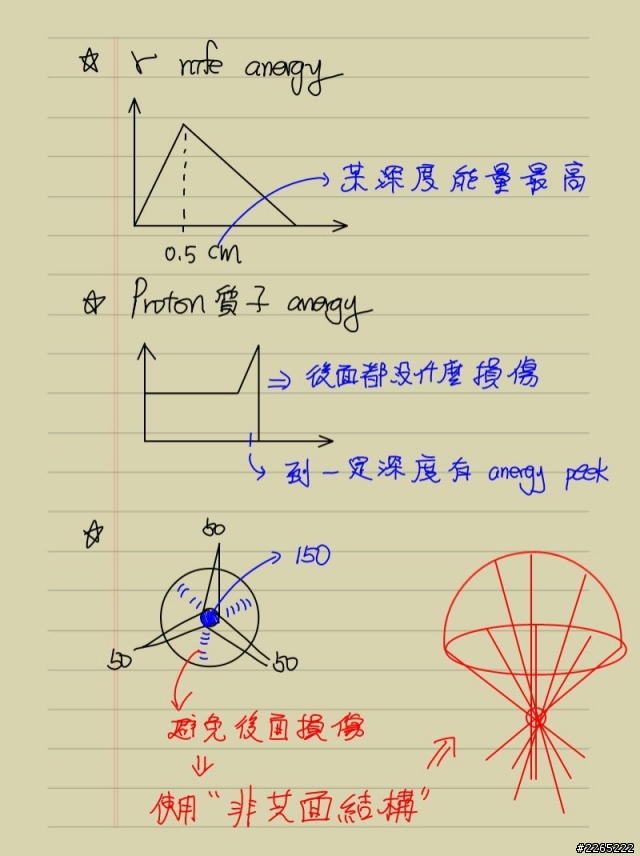 ☆ γ knife anergy
某深度能量最高
0.5 cm
☆ Proton 質子 anergy
⇒ 後面都没什麼損傷
到一定深度有 anergy peek
☆
50
150
50
50
避免後面損傷
⇓
使用"非共面結構"
#2265222